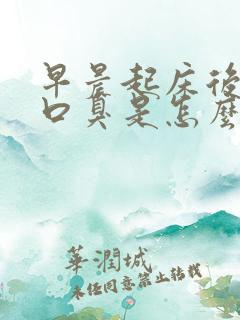 早晨起床後
口臭是怎麼
華潤城
未经同意禁止转载